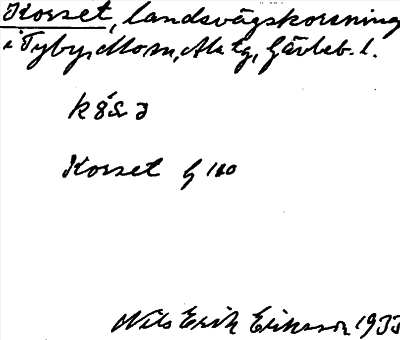 Korset, landsvägskorsning
i Tyby, Mom, Ala tg, Gävleb. l.
Korset G 180
Nils Erik Eriksson 1933